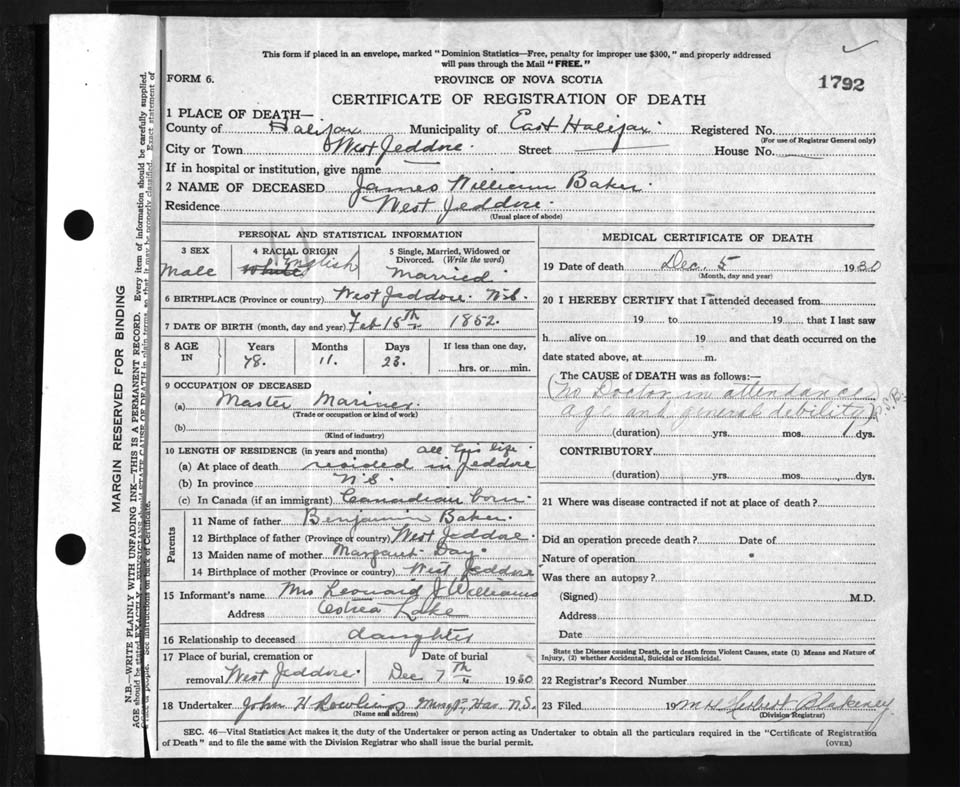 This form if placed in an envelope, marked "Dominion Statistics—Free, penalty for improper use $300," and properly addressed
will pass through the Mail "FREE."
FORM 6.
PROVINCE OF NOVA SCOTIA
1792
CERTIFICATE OF REGISTRATION OF DEATH
1 PLACE OF DEATH—
County of Halifax Municipality of East Halifax Registered No.
(For use of Registrar General only)
City or Town West Jeddore Street House No.
If in hospital or institution, give name
2 NAME OF DECEASED James William Baker
Residence West Jeddore
(Usual place of abode)
PERSONAL AND STATISTICAL INFORMATION
3 SEX 4 RACIAL ORIGIN 5 Single, Married, Widowed or
Divorced. (Write the word)
Male White English Married
6 BIRTHPLACE (Province or country) West Jeddore N.S.
7 DATE OF BIRTH (month, day and year) Feb 15th 1852.
8 AGE IN Years Months Days If less than one day,
78. 11. 23. hrs. or min.
9 OCCUPATION OF DECEASED
(a) Master Mariner
(Trade or occupation or kind of work)
(b)
(Kind of industry)
10 LENGTH OF RESIDENCE (in years and months) all his life
(a) At place of death resided in Jeddore
(b) In province N.S.
(c) In Canada (if an immigrant) Canadian born
Parents
11 Name of father Benjamin Baker
12 Birthplace of father (Province or country) West Jeddore
13 Maiden name of mother Margaret Day
14 Birthplace of mother (Province or country) West Jeddore
15 Informant's name Mrs Leonard J Williams
Address Ostrea Lake
16 Relationship to deceased daughter
17 Place of burial, cremation or Date of burial
removal West Jeddore Dec 7th 1930
18 Undertaker John H Rowlings Musqt. Har N.S.
(Name and address)
MEDICAL CERTIFICATE OF DEATH
19 Date of death Dec. 5 1930
(Month, day and year)
20 I HEREBY CERTIFY that I attended deceased from
19 to 19 that I last saw
h alive on 19 and that death occurred on the
date stated above, at m.
The CAUSE of DEATH was as follows:—
(No Doctor in attendance)
age and general debility) P.S.B.
(duration) yrs. mos. dys.
CONTRIBUTORY
(duration) yrs. mos. dys.
21 Where was disease contracted if not at place of death?
Did an operation precede death? Date of
Nature of operation
Was there an autopsy?
(Signed) M.D.
Address
Date
State the Disease causing Death, or in death from Violent Causes, state (1) Means and Nature of
Injury, (2) whether Accidental, Suicidal or Homicidal.
22 Registrar's Record Number
23 Filed 19 Herbert Blakeney
(Division Registrar)
SEC. 46—Vital Statistics Act makes it the duty of the Undertaker or person acting as Undertaker to obtain all the particulars required in the "Certificate of Registration
of Death" and to file the same with the Division Registrar who shall issue the burial permit.
(OVER)
MARGIN RESERVED FOR BINDING
N.B.—WRITE PLAINLY WITH UNFADING INK—THIS IS A PERMANENT RECORD. Every item of information should be carefully supplied.
AGE should be stated EXACTLY. STATE CAUSE OF DEATH in plain terms so that it may be properly classified. Exact statement of
See instructions on back of Certificate.